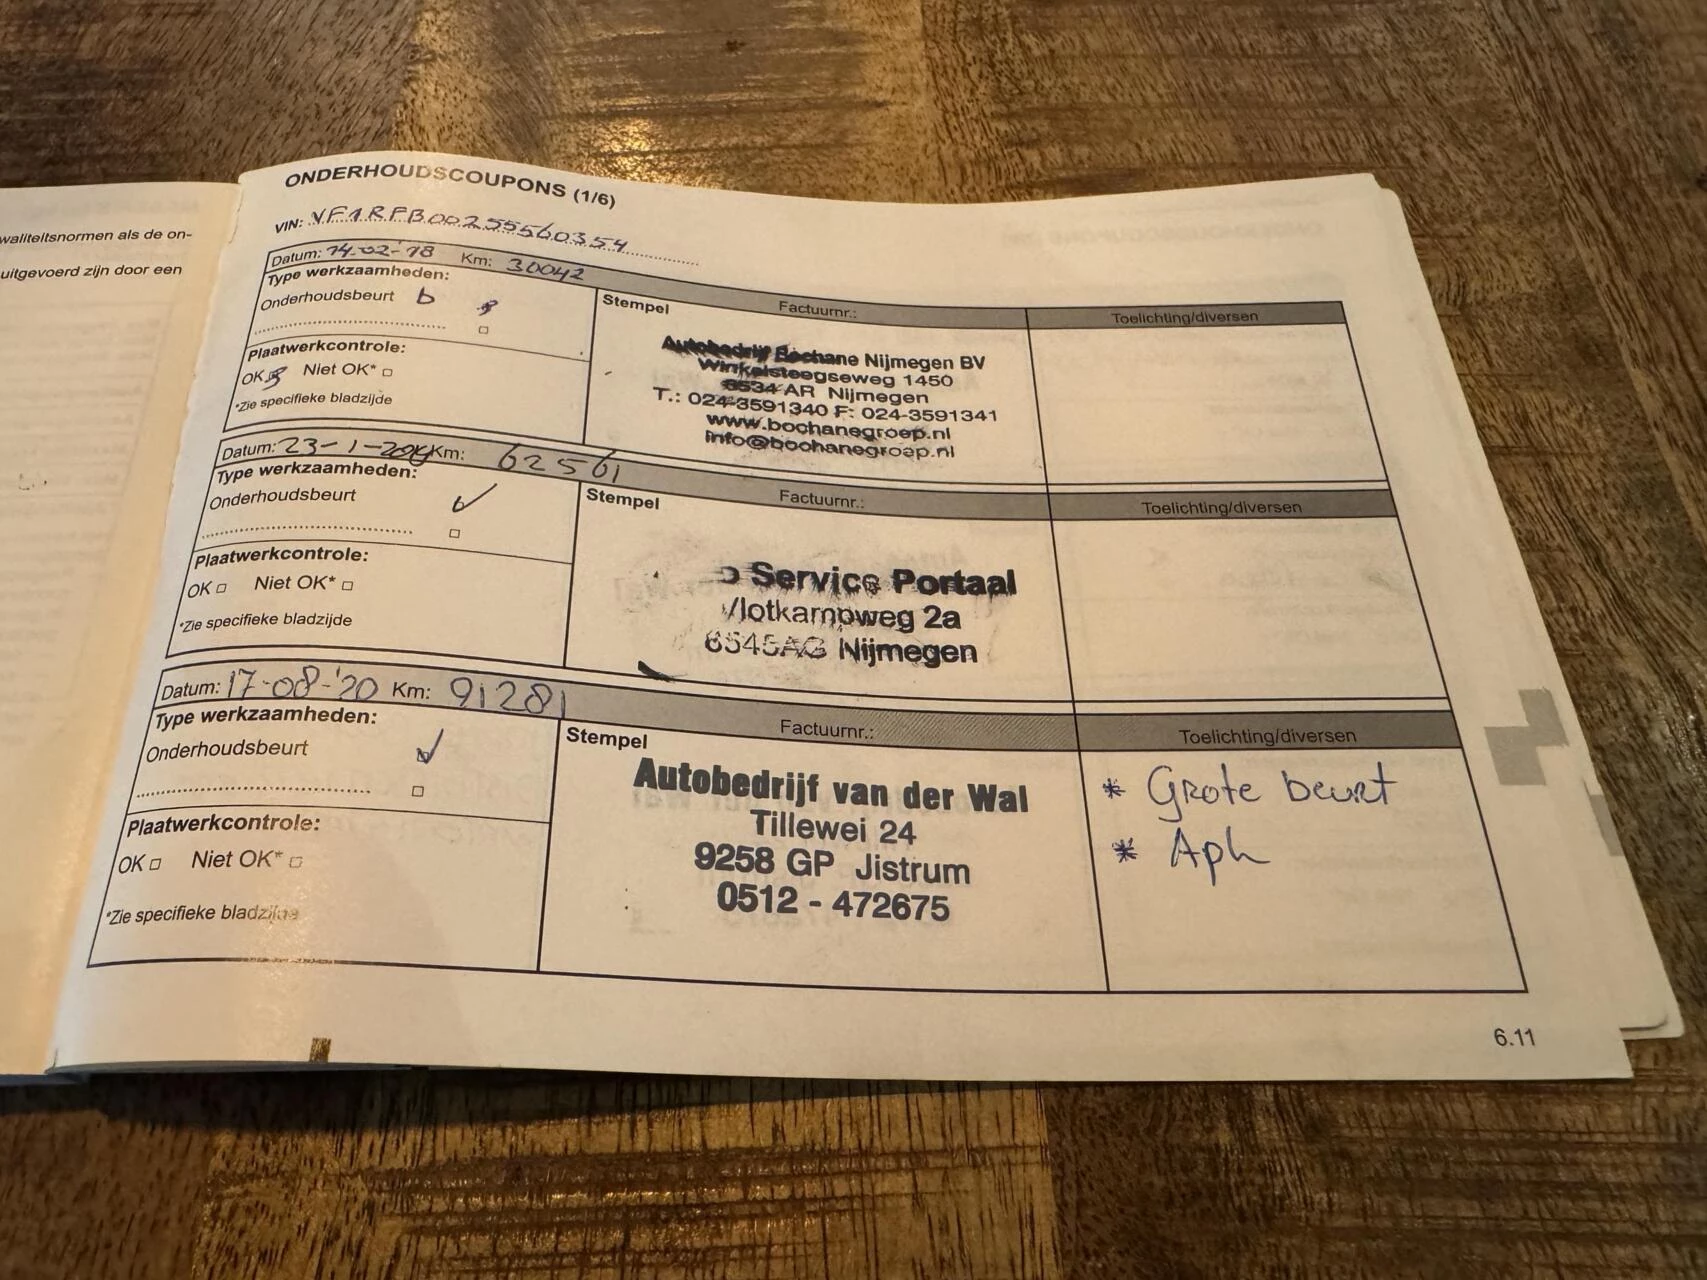 waliteitsnormen als de on-
uitgevoerd zijn door een
ONDERHOUDSCOUPONS (1/6)
VIN: VF1RFB00255560354
Datum: 14-02-'18 Km: 30042
Type werkzaamheden:
Onderhoudsbeurt b
Plaatwerkcontrole:
OK Niet OK*
*Zie specifieke bladzijde
Stempel
Factuurnr.:
Toelichting/diversen
Autobedrijf Bochane Nijmegen BV
Winkelsteegseweg 1450
6534 AR Nijmegen
T.: 024-3591340 F: 024-3591341
www.bochanegroep.nl
info@bochanegroep.nl
Datum: 23-1- Km: 62561
Type werkzaamheden:
Onderhoudsbeurt
Plaatwerkcontrole:
OK Niet OK*
*Zie specifieke bladzijde
Stempel
Factuurnr.:
Toelichting/diversen
Service Portaal
Vlotkampweg 2a
6545AG Nijmegen
Datum: 17-08-'20 Km: 91281
Type werkzaamheden:
Onderhoudsbeurt
Plaatwerkcontrole:
OK Niet OK*
*Zie specifieke bladzijde
Stempel
Factuurnr.:
Toelichting/diversen
Autobedrijf van der Wal
Tillewei 24
9258 GP Jistrum
0512 - 472675
* Grote beurt
* Apk
6.11